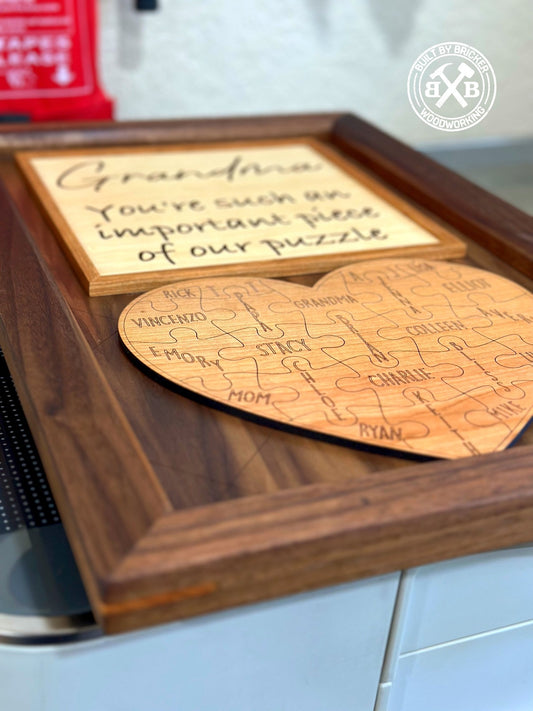 TAPES
RELEASE
BUILT BY BRICKER
B B
WOODWORKING
Grandma
You're such an
important piece
of our puzzle
RICK
VINCENZO
GRANDMA
LISA
ELLIOT
EMORY
STACY
COLLEEN
AVERA
CHLOE
CHARLIE
MOM
RYAN
KEITH
MIKE